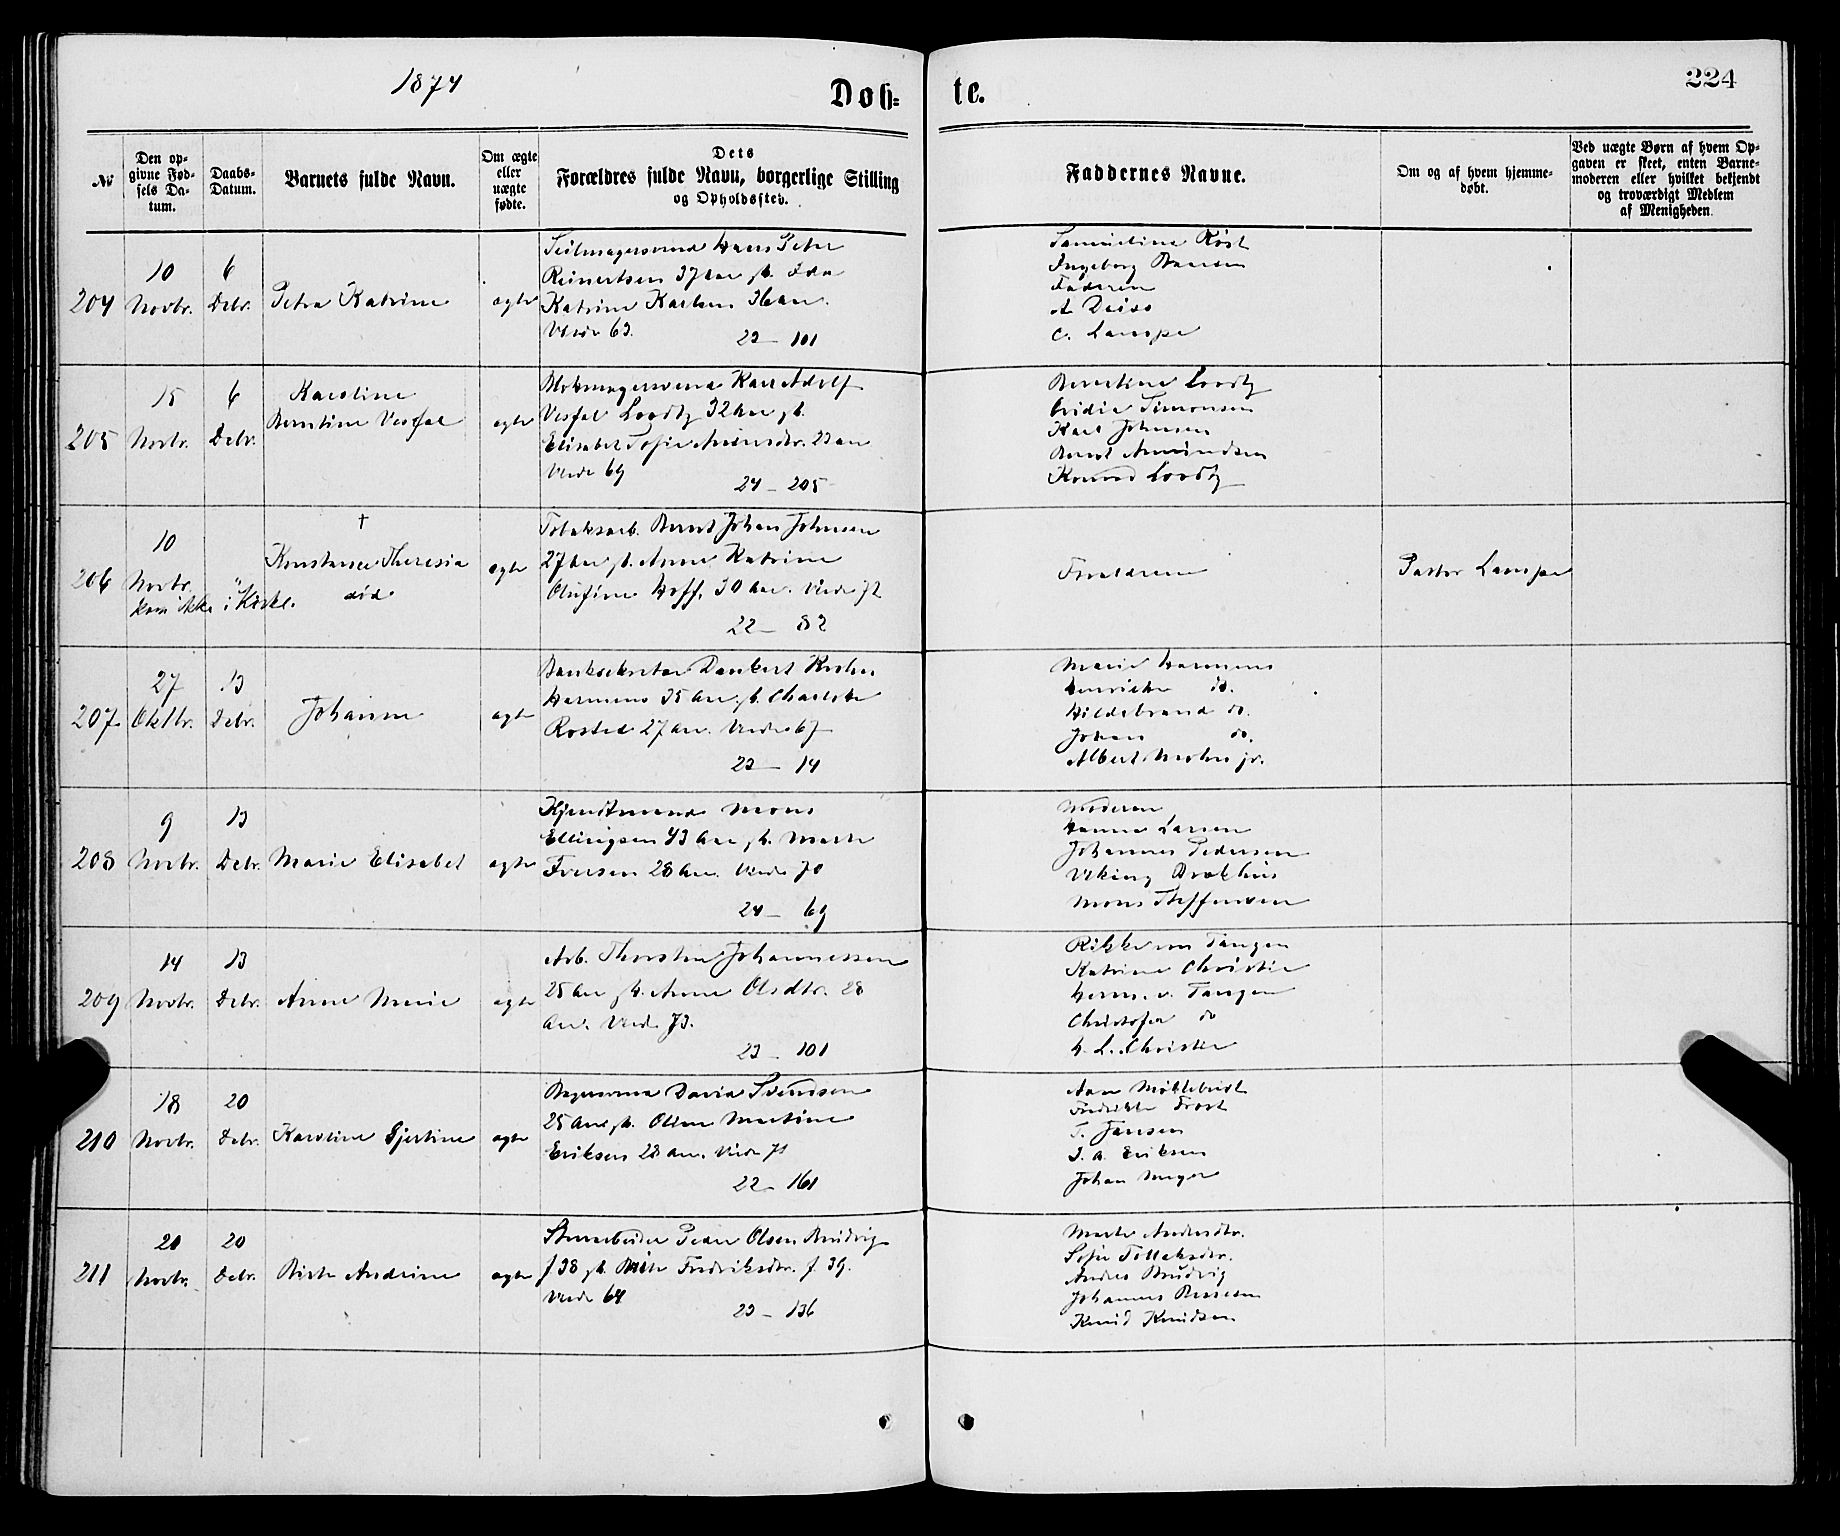 1874
Døb=
te.
224
№
Den op=
givne Fød=
sels Da=
tum.
Daabs=
Datum.
Barnets fulde Navn.
Om ægte
eller
uægte
fødte.
Dets
Forældres fulde Navn, borgerlige Stilling
og Opholdssted.
Faddernes Navne.
Om og af hvem hjemme=
døbt.
Ved uægte Børn af hvem Op=
gaven er skeet, enten Barne=
moderen eller hvilket bekjendt
og troværdigt Medlem
af Menigheden.
204
10
Novbr.
6
Debr.
Petra Katrine
ægte
Seilmagersvend Hans Peter
Reinertsen 37 aar
Katrine Karlsen 36 aar.
63.
23 — 101
Røst
Ingeborg
Faderen
C. Lampe
205
15
Novbr.
6
Debr.
Karoline
Berntine Vesfal
ægte
Karl Adolf
Vesfal Loodtz 32 aar
Elisabet Sofie 23 aar
69
24 — 205
Berntine Loodtz
Simonsen
Karl Johnsen
Bernt Amundsen
Konrad Loodtz
206
10
Novbr.
kom ikke i Kirke.
†
Konstance Theresia
død
ægte
Tobaksarb. Bernt Johan Johnsen
27 aar Anne Katrine
Olufine Hoff, 30 aar. 72
22 — 82
Forældrene
Pastor Lampe
207
27
Oktbr.
13
Debr.
Johanne
ægte
Banksekretær Dankert Krohn
Harmens 35 aar Charlotte
Rosted 27 aar. 67
23 — 14
Marie Harmens
Henriette do.
Hildebrand do.
Johan do.
Albert Mohn jr.
208
9
Novbr.
13
Debr.
Marie Elisabet
ægte
Mons
Ellingsen 43 aar Marte
Iversen 28 aar. 70
24 — 69
Moderen
Hanna Larsen
Johannes Pedersen
Viking
Mons Steffensen
209
14
Novbr.
13
Debr.
Anne Marie
ægte
Arb. Thorsten Johannessen
25 aar Anne Olsdtr. 28
aar. 73.
23 — 101
Rikke von Tangen
Katrine Christie
Herm. v. Tangen
Christofer do
H. L. Christie
210
18
Novbr.
20
Debr.
Karoline Gjertine
ægte
Bagersvend David Svendsen
25 aar Oline Martine
Eriksen 28 aar. 71
22 — 161
Fredrikke Frost
T. Jansen
J. A. Eriksen
Johan Meyer
211
20
Novbr.
20
Debr.
Birte Andrine
ægte
Stenarbeider Peder Olsen Brudvig
f 38 Brite Fredriksdtr. f. 39.
64
23 — 136
Marte Andersdtr.
Sofie Tollaksdtr.
Andreas Brudvig
Johannes
Knud Knudsen